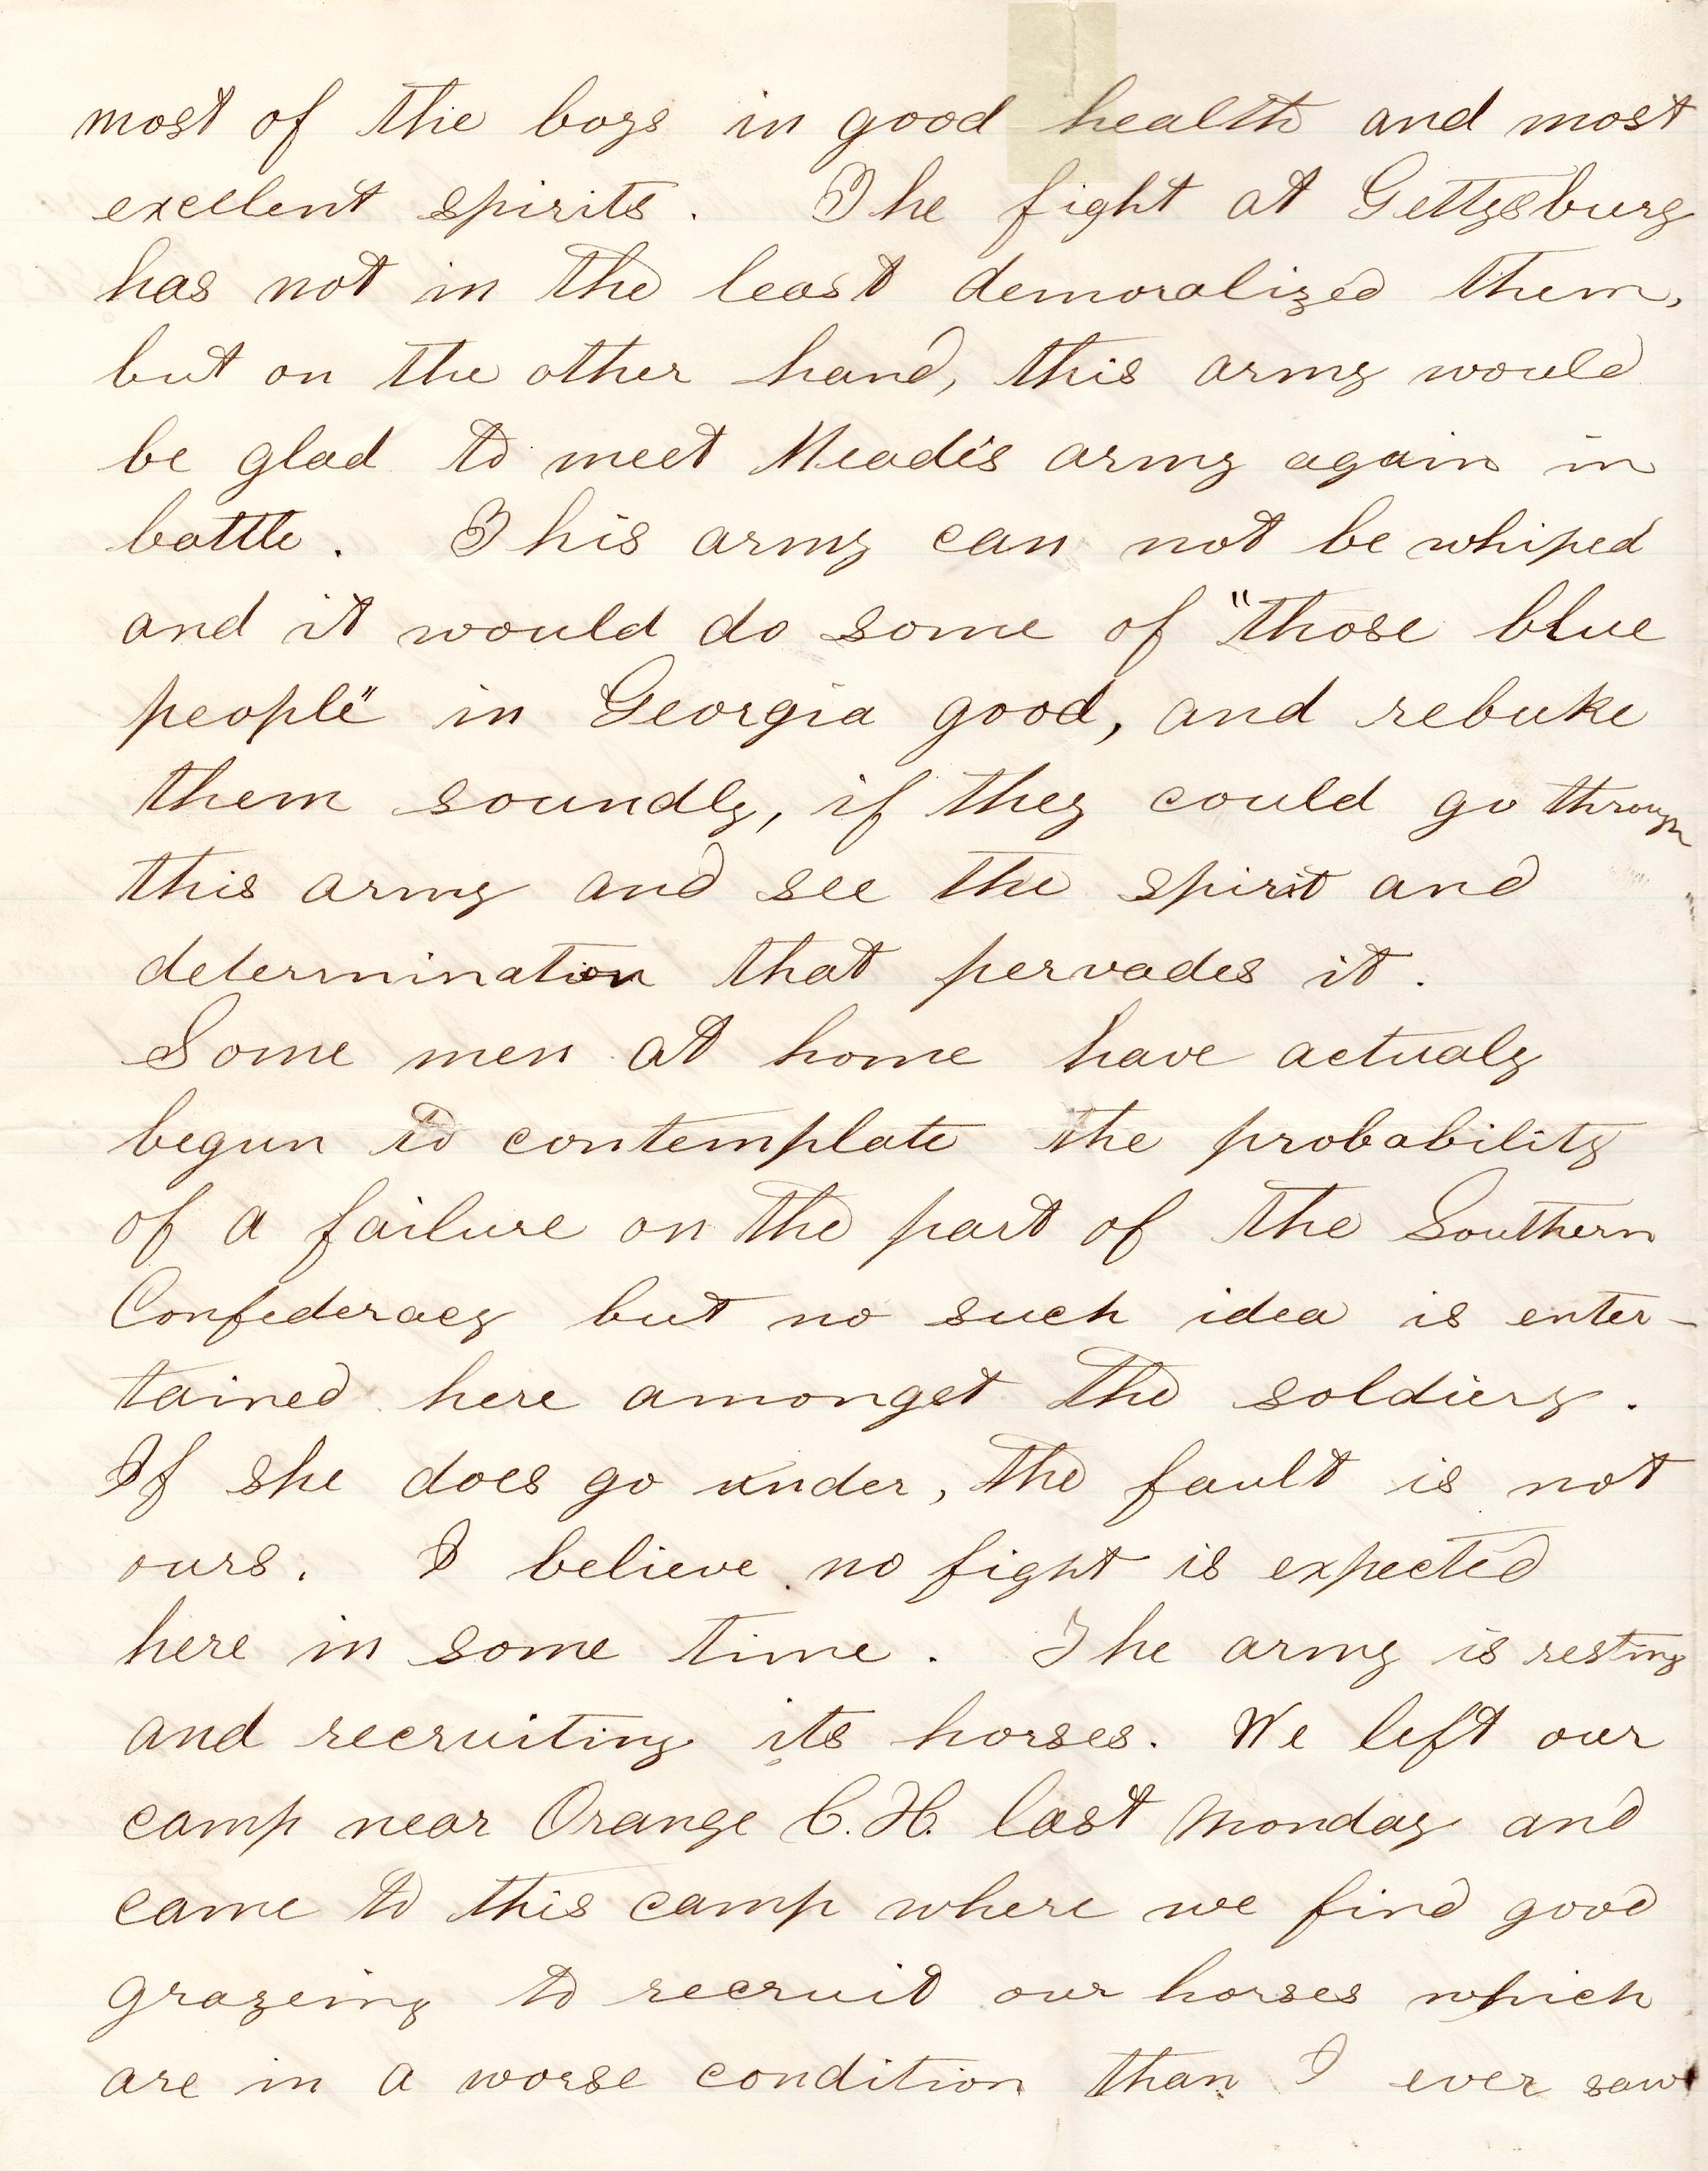 most of the boys in good health and most
excellent spirits. The fight at Gettysburg
has not in the least demoralized them,
but on the other hand, this army would
be glad to meet Meade's army again in
battle. This army can not be whiped
and it would do some of "those blue
people" in Georgia good, and rebuke
them soundly, if they could go through
this army and see the spirit and
determination that pervades it.
Some men at home have actualy
begun to contemplate the probability
of a failure on the part of the Southern
Confederacy but no such idea is enter-
tained here amongst the soldiery.
If she does go under, the fault is not
ours. I believe no fight is expected
here in some time. The army is resting
and recruiting its horses. We left our
camp near Orange C.H. last Monday and
came to this camp where we find good
grazeing to recruit our horses which
are in a worse condition than I ever saw